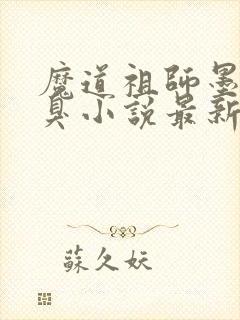 魔道祖師墨
臭小說最新
蘇久妖